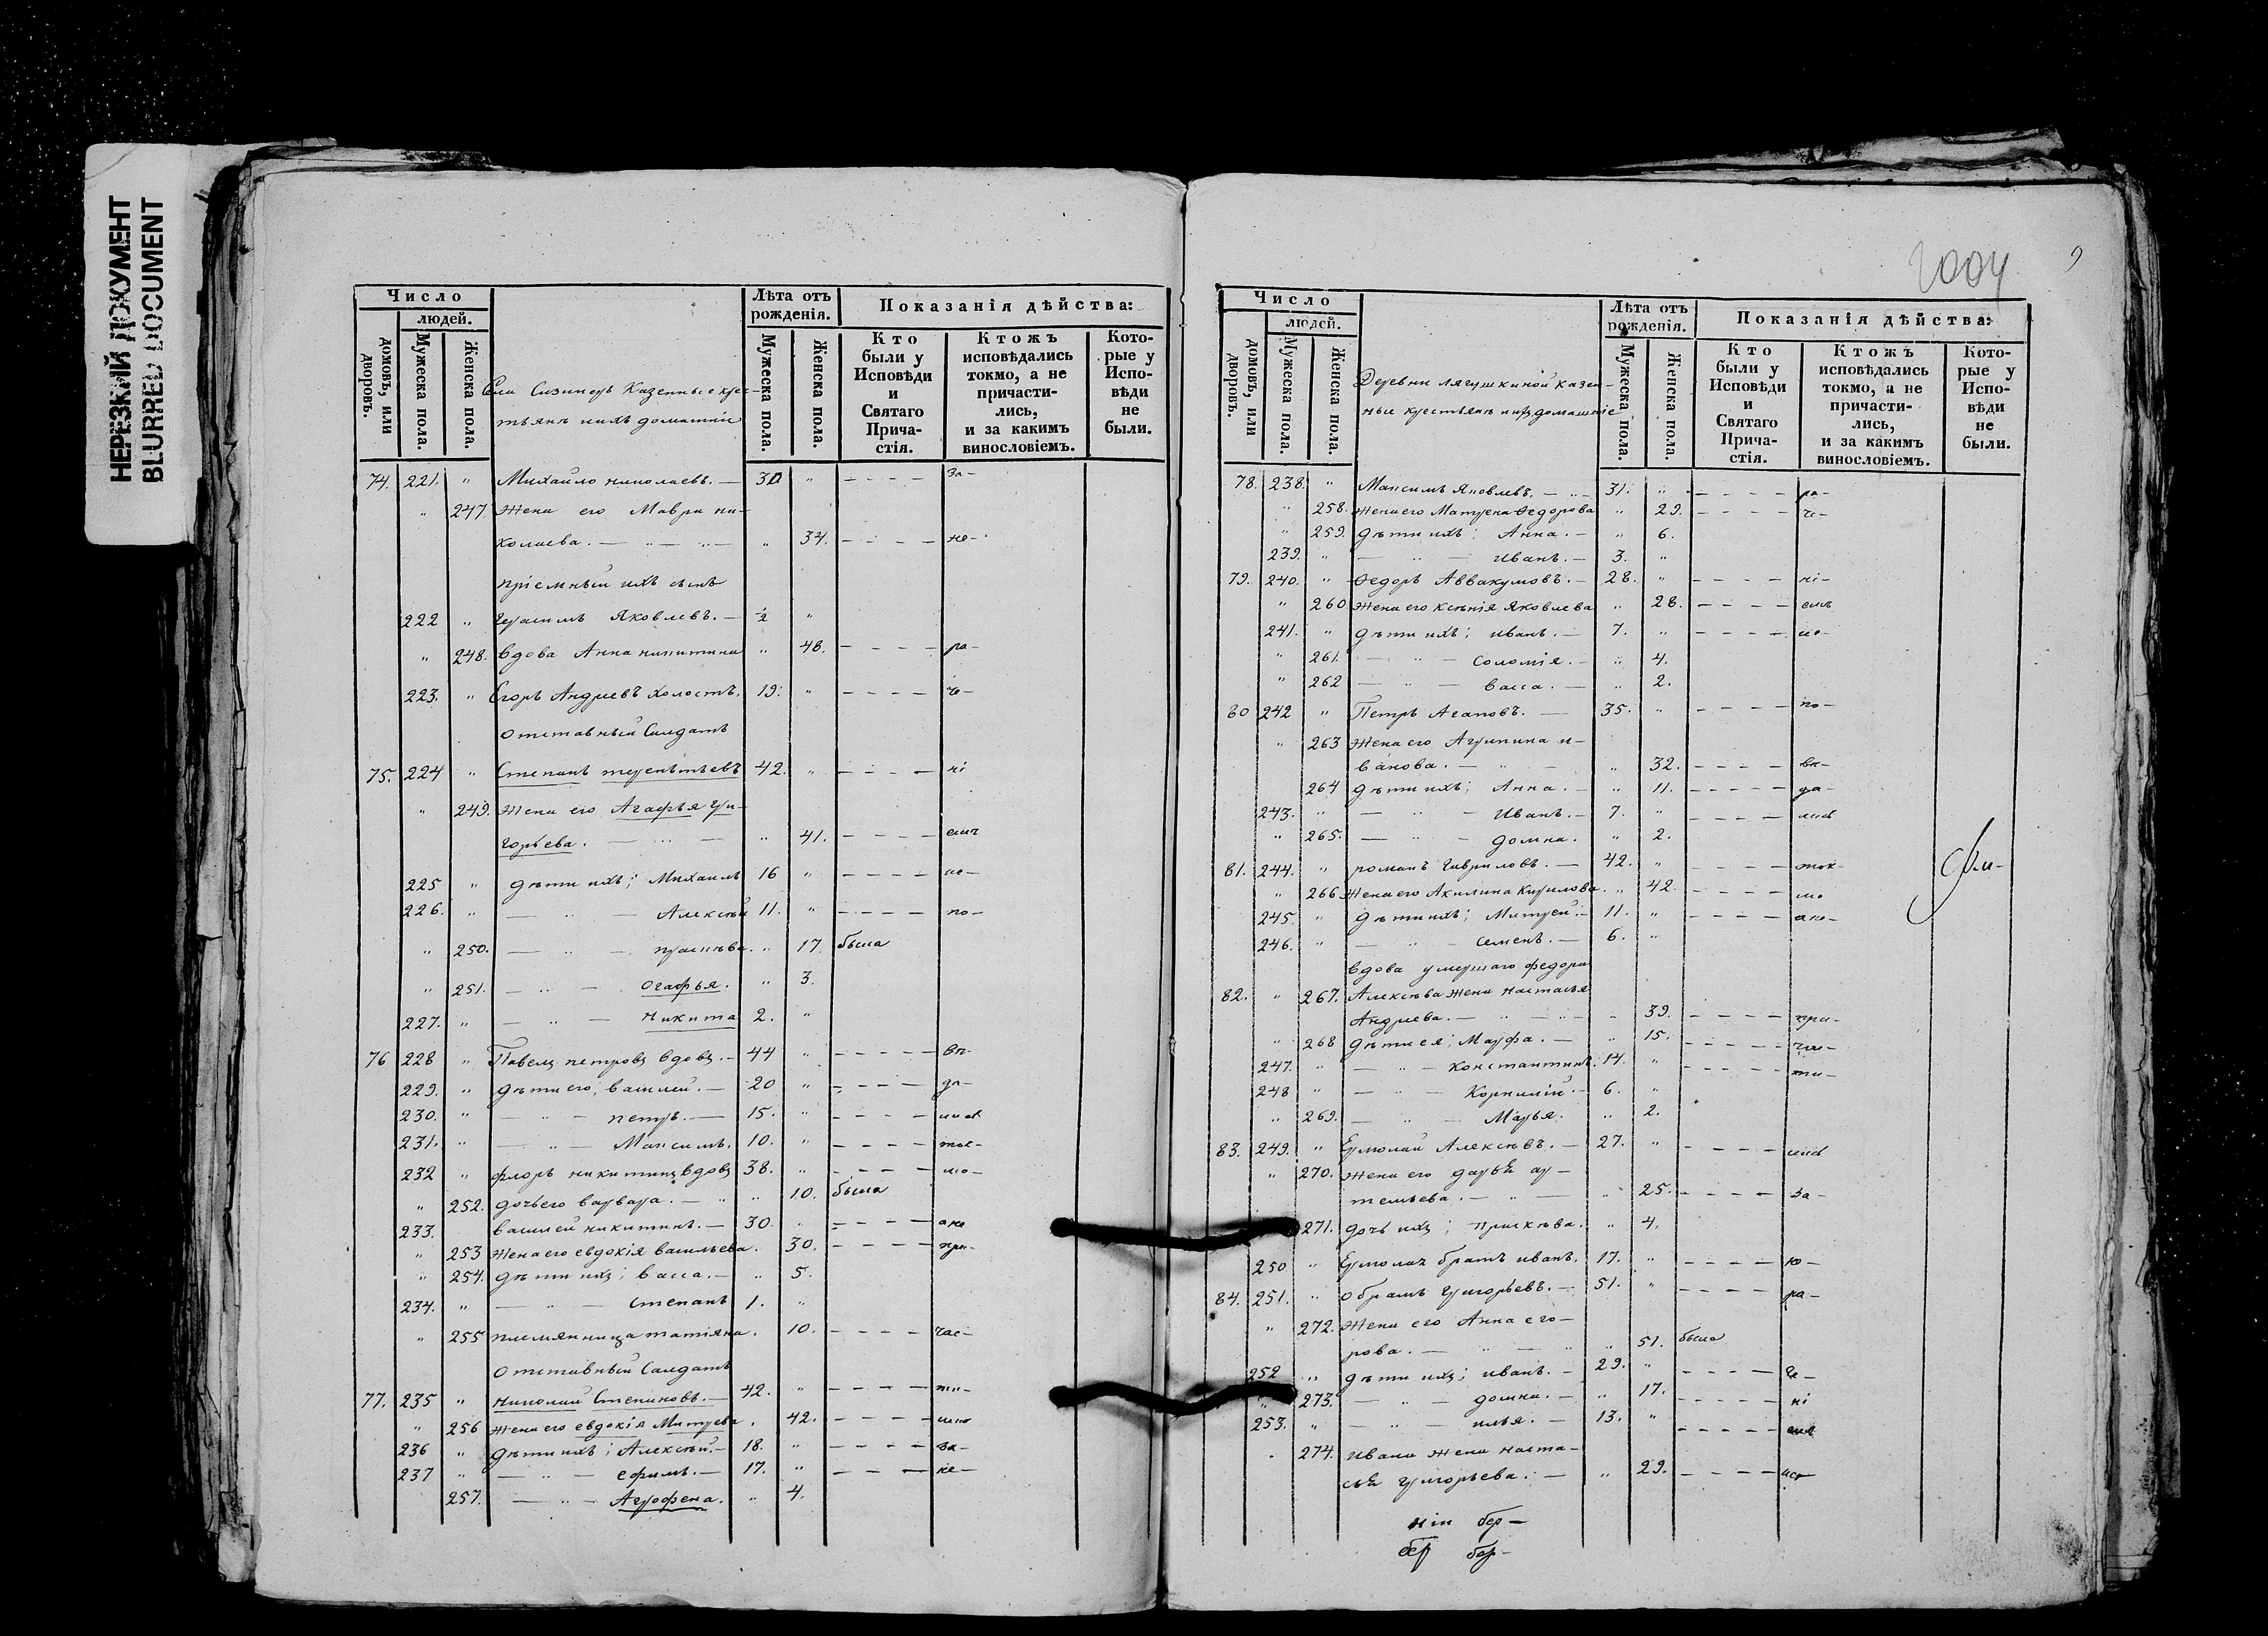 НЕРЕЗКИЙ ДОКУМЕНТ
BLURRED DOCUMENT
Число
людей.
домовъ, или дворовъ.
Мужеска пола.
Женска пола.
Лѣта отъ рожденія.
Мужеска пола.
Женска пола.
Показанія дѣйства:
Кто были у Исповѣди и Святаго Прича-стія.
Ктожъ исповѣдались токмо, а не причасти-лись, и за какимъ винословіемъ.
Кото-рые у Испо-вѣди не были.
Казенные крес-
тьянъ ихъ домашніи
74. 221. " Михайло николаевъ. — 30 " - - - - за-
" 247. жена его Мавра ни-
колаева. — " — " — " 34. - - - - не-
пріемный ихъ сынъ
222 " Герасимъ Яковлевъ. — ½ "
" 248. вдова Анна никитина " 48. - - - - ра-
223. " Егоръ Андреевъ холостъ. 19. " - - - - че-
отставный Салдатъ
75. 224 " Степанъ терентьевъ 42. " - - - - ні
" 249. жена его Агафья Гри-
горьева. — " — " 41. - - - - емъ
225 " дѣти ихъ; Михаилъ 16 " - - - - ис-
226. " — " — Алексѣй 11. " - - - - по-
" 250. — " — праскѣва. " 17. была
" 251. — " — огафья. " 3.
227. " — " — Никита 2. "
76 228 " Павелъ петровъ вдовъ. — 44 " - - - - вѣ-
229. " дѣти его; василей. — 20 " - - - - да-
230. " — " — петръ. — 15. " - - - -
231. " — " — Максимъ. 10. " - - - - ток-
232 " флоръ никитинъ вдовъ 38. " - - - - мо-
" 252. дочь его варвара. — " " 10. была
233. василей никитинъ. — 30. " - - - - ане
" 253 жена его евдокія васильева. 30. - - - - при-
" 254. дѣти ихъ; васса. — " 5.
234. " — " — степанъ 1. "
" 255 племянница татіяна. 10. - - - - час-
отставный Салдатъ
77. 235 " николай Степановъ. — 42. " - - - - ти-
" 256 жена его евдокія Митрева. 42. - - - -
236 " дѣти ихъ; Алексѣй. — 18. " - - - - за-
237 " — " — ефимъ. — 17. " - - - - не-
257. — " — Агрофена. " 4.
2004
9
Число
людей.
домовъ, или дворовъ.
Мужеска пола.
Женска пола.
Лѣта отъ рожденія.
Мужеска пола.
Женска пола.
Показанія дѣйства:
Кто были у Исповѣди и Святаго Прича-стія.
Ктожъ исповѣдались токмо, а не причасти-лись, и за какимъ винословіемъ.
Кото-рые у Испо-вѣди не были.
Деревни лягушкиной казен-
ные крестьянъ ихъ домашніе
78. 238. " Максимъ Яковлевъ. — " — 31. " - - - - ра-
" 258. жена его Матрена Ѳедорова " 29. - - - - че-
" 259. дѣти ихъ; Анна. — " 6.
239. " — " — иванъ. — 3. "
79. 240. " Ѳедоръ Аввакумовъ. — 28. " - - - - ні-
" 260 жена его ксенія Яковлева " 28. - - - - емъ
241. " дѣти ихъ; иванъ. — 7. " - - - - ис-
" 261. — " — соломія. — " 4.
" 262 — " — васса. — " 2.
80 242 " Петръ Агаповъ. — 35. " - - - - по-
" 263 жена его Агрипина и-
ванова. — " — " 32. - - - - вѣ-
264 дѣти ихъ; Анна. — " 11. - - - - да-
243. " — " — иванъ. — 7. " - - - -
" 265. — " — домна. " 2.
81. 244. " романъ Гавриловъ. — 42. " - - - - ток-
" 266. жена его Акилина Кирилова. " 42. - - - - мо
245. " дѣти ихъ; Митрей. — 11. " - - - - ане-
246. " — " — семенъ. — 6. "
вдова умершаго федора
82. " 267. Алексѣва жена настасья
Андреева. — " — " — " 39. - - - - при-
" 268 дѣти ея; Марфа. — " 15. - - - - час-
247. " — " — константинъ. 14. " - - - - ти-
248 " — " — Корнилій. — 6. "
" 269. — " — Марья. " 2.
83. 249. " Ермолай Алексѣвъ. — 27. " - - - -
" 270. жена его дарья ар-
темьева. — " — " 25. - - - - за-
271. дочь ихъ; праскѣва. " 4.
250 " Ермолая братъ иванъ. 17. " - - - - ю-
84. 251. " обрамъ Григорьевъ. — 51. " - - - - ра-
" 272. жена его Анна его-
рова. — " — " " 51. была
252 " дѣти ихъ; иванъ. — 29. " - - - - че-
" 273. — " — домна. — " 17. - - - - ні
253. " — " — илья. — 13. " - - - - емъ
" 274. ивана жена наста-
сья григорьева. — " 29. - - - - ис-